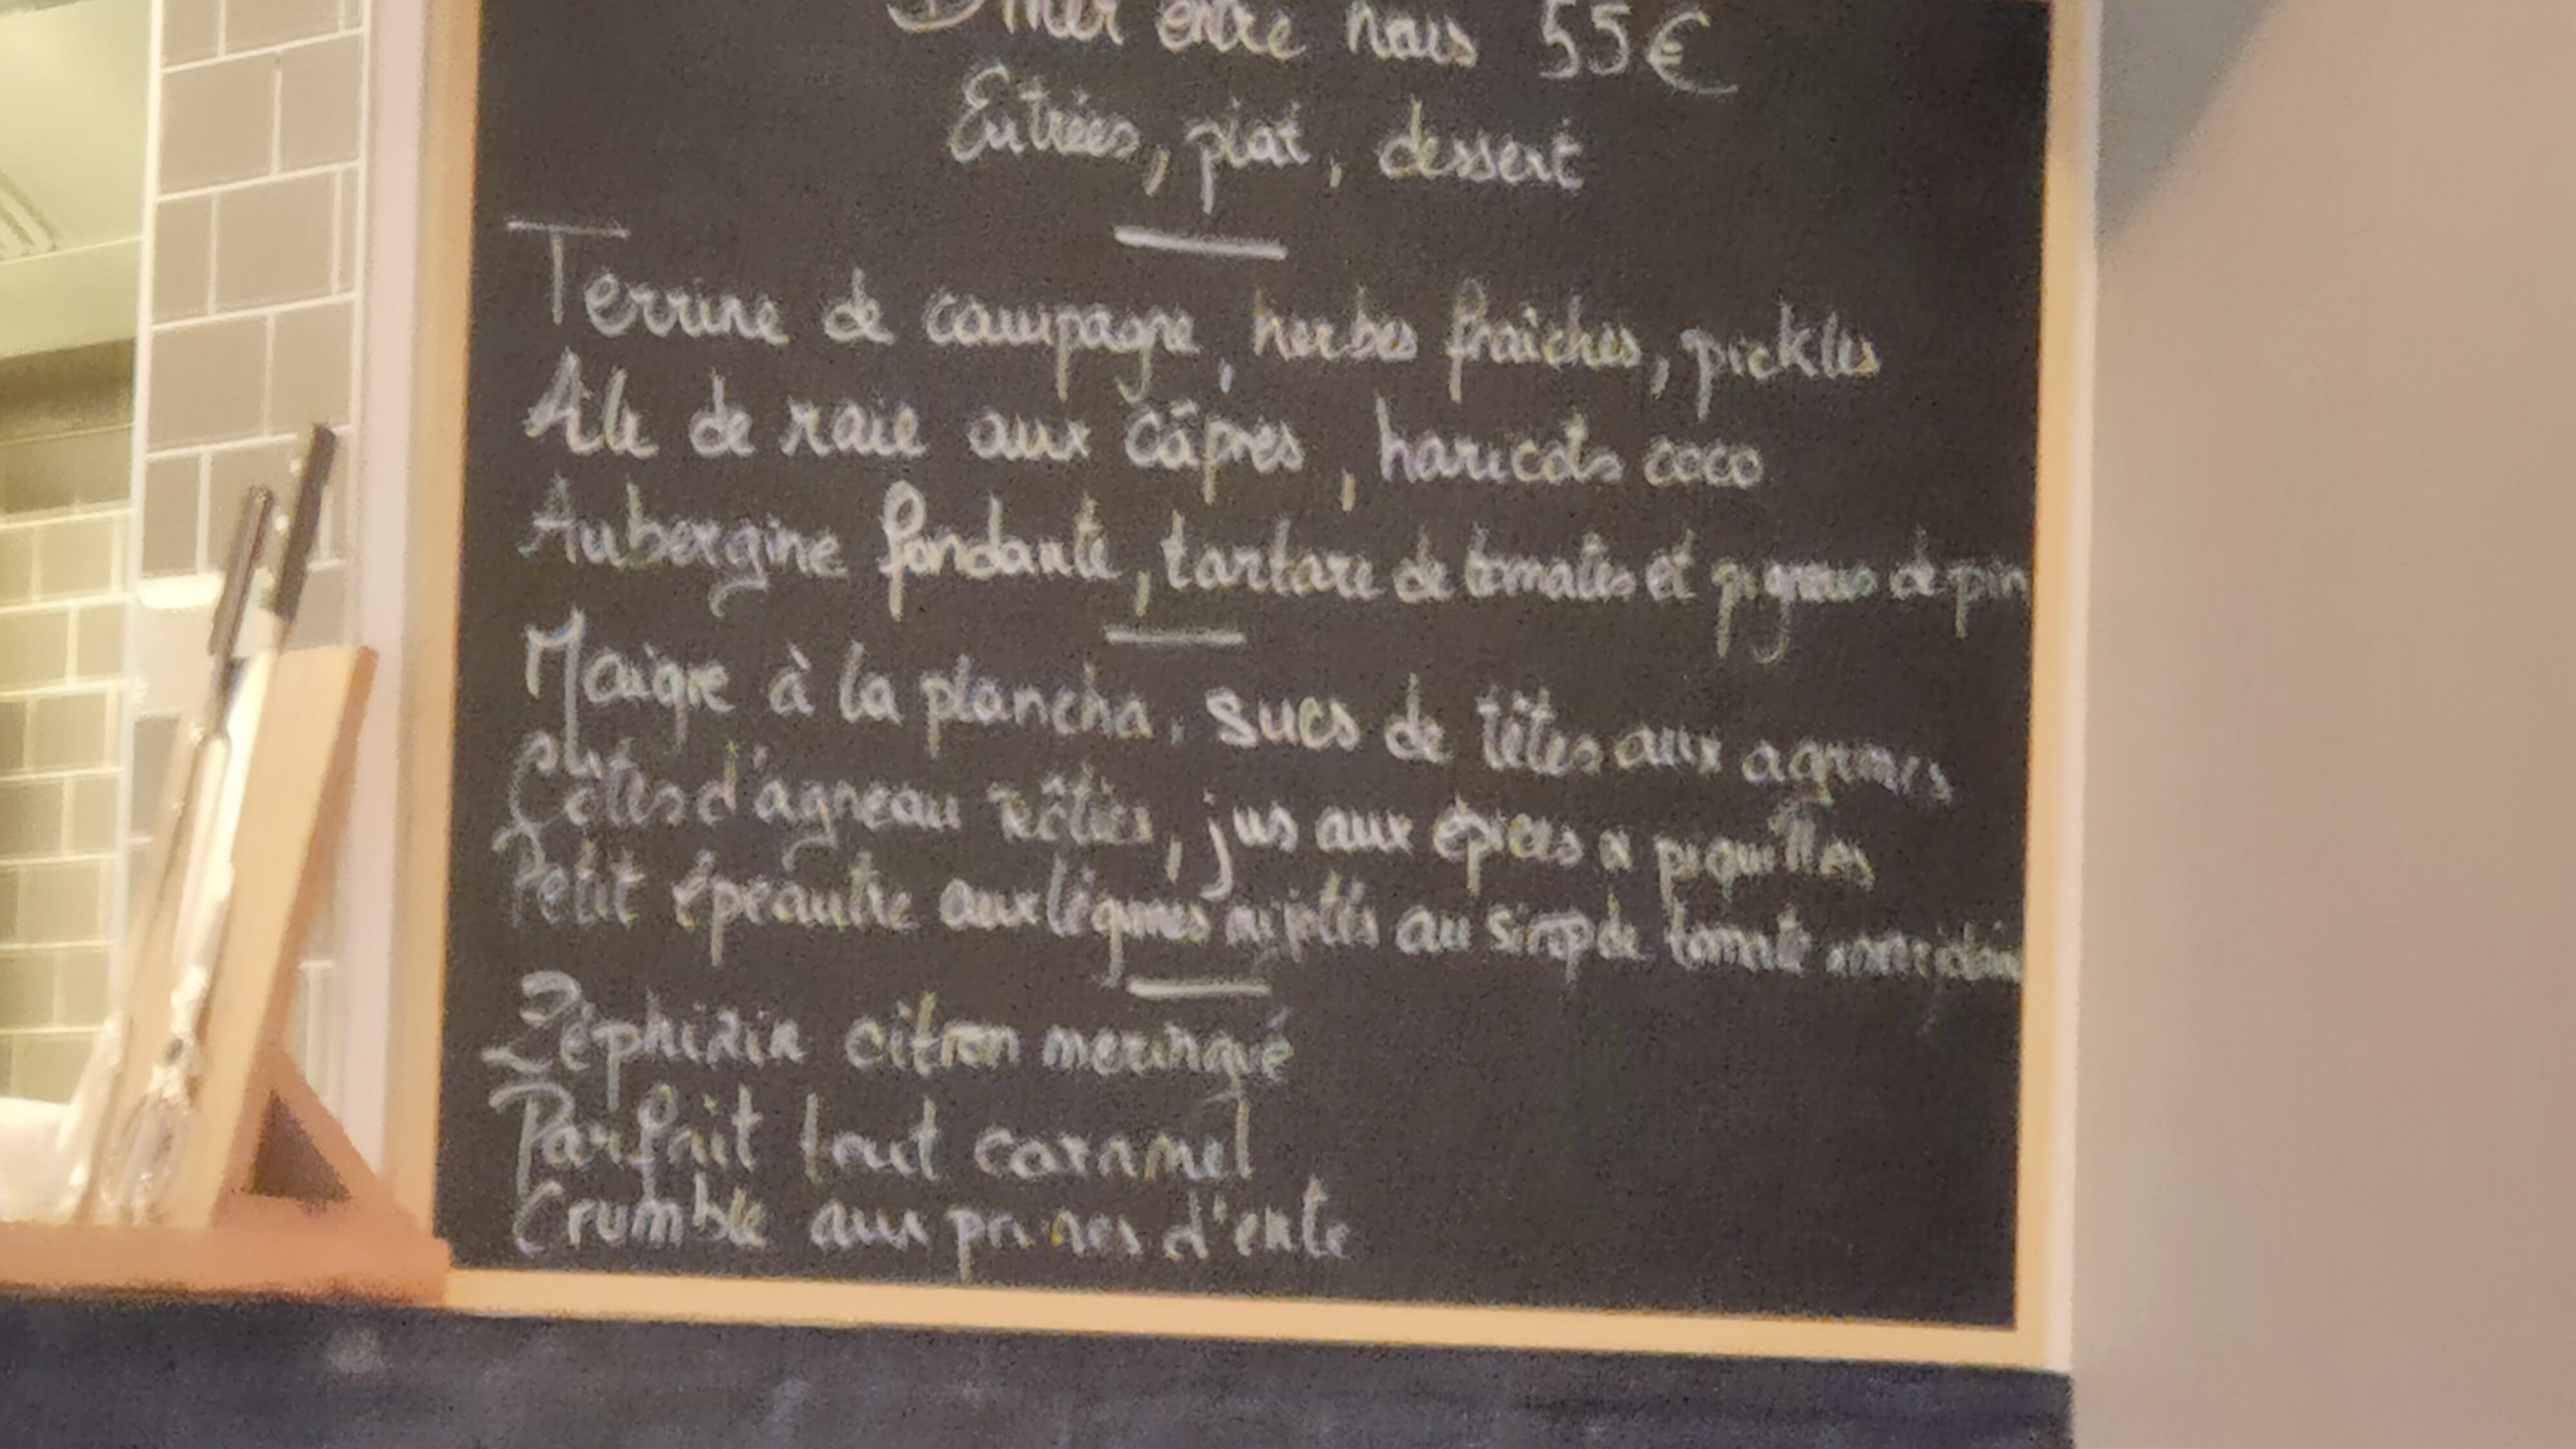 Dîner entre nous 55€
Entrées, plat, dessert
Terrine de campagne, herbes fraîches, pickles
Aile de raie aux câpres, haricots coco
Aubergine fondante, tartare de tomates et pignons de pin
Maigre à la plancha, sucs de têtes aux agrumes
Côtes d'agneau rôties, jus aux épices & piquillos
Petit épeautre aux légumes mijotés au sirop de tomate
Zéphirin citron meringué
Parfait tout caramel
Crumble aux prunes d'ente